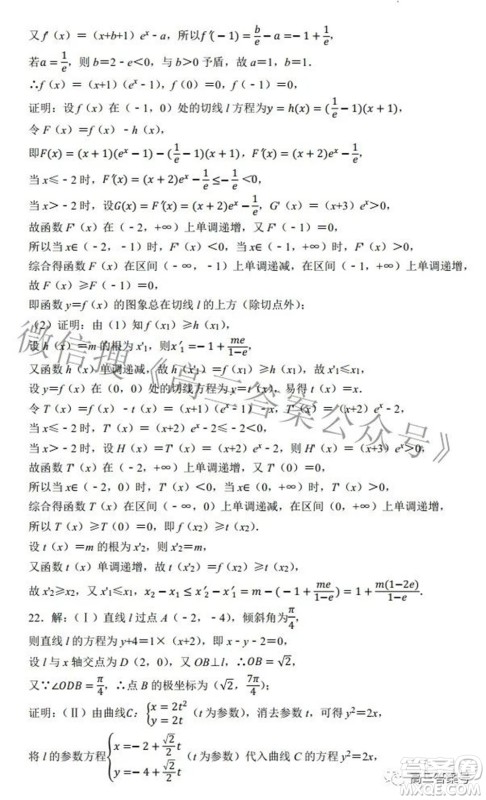 又f′（x）=（x+b+1）eˣ﹣a，所以f′(﹣1)=b/e﹣a=﹣1+1/e，
若a=1/e，则b=2﹣e＜0，与b＞0予盾，故a=1，b=1．
∴f（x）=（x+1）（eˣ﹣1），f（0）=0，f（﹣1）=0，
证明：设f（x）在（﹣1，0）处的切线l方程为y=h(x)=(1/e﹣1)(x+1)，
令F（x）=f（x）﹣h（x），
即F(x)=(x+1)(eˣ﹣1)﹣(1/e﹣1)(x+1)，F′(x)=(x+2)eˣ﹣1/e，
当x≤﹣2时，F′(x)=(x+2)eˣ﹣1/e≤﹣1/e＜0，
当x＞﹣2时，设G(x)=F′(x)=(x+2)eˣ﹣1/e，G′（x）=（x+3）eˣ＞0，
故函数F′（x）在（﹣2，+∞）上单调递增，又F′（﹣1）=0，
所以当x∈（﹣2，﹣1）时，F′（x）＜0，当x∈（﹣1，+∞）时，F′（x）＞0，
综合得函数F（x）在区间（﹣∞，﹣1）上单调递减，在区间（﹣1，+∞）上单调递增，
故F（x）≥F（﹣1）=0，
即函数y=f（x）的图象总在切线l的上方（除切点外）；
（2）证明：由（1）知f（x₁）≥h（x₁），
设h（x）=m的根为x′₁，则x′₁=﹣1+me/(1﹣e)，
又函数h（x）单调递减，故h（x′₁）=f（x₁）≥h（x₁），故x′₁≤x₁，
设y=f（x）在（0，0）处的切线方程为y=t（x），易得t（x）=x．
令T（x）=f（x）﹣t（x）=（x+1）（eˣ﹣1）﹣x，T′（x）=（x+2）eˣ﹣2，
当x≤﹣2时，T′（x）=（x+2）eˣ﹣2≤﹣2＜0，
当x＞﹣2时，设H（x）=T′（x）=（x+2）eˣ﹣2，则H′（x）=（x+3）eˣ＞0，
故函数T′（x）在（﹣2，+∞）上单调递增，又T′（0）=0，
所以当x∈（﹣2，0）时，T′（x）＜0，当x∈（0，+∞）时，T′（x）＞0，
综合得函数T（x）在区间（﹣∞，0）上单调递减，在区间（0，+∞）上单调递增，
所以T（x）≥T（0）=0，即f（x₂）≥t（x₂）．
设t（x）=m的根为x′₂，则x′₂=m，
又函数t（x）单调递增，故t（x′₂）=f（x₂）≥t（x₂），
故x′₂≥x₂，又x′₁≤x₁，x₂﹣x₁≤x′₂﹣x′₁=m﹣(﹣1+me/(1﹣e))=1+m(1﹣2e)/(1﹣e)．
22．解：（Ⅰ）直线l过点A（﹣2，﹣4），倾斜角为π/4，
则直线l的方程为y+4=1×（x+2），即x﹣y﹣2=0，
设l与x轴交点为D（2，0），又OB⊥l，∴OB=√2，
又∵∠ODB=π/4，∴点B的极坐标为(√2，7π/4)；
证明：（Ⅱ）由曲线C：{x=2t² y=2t（t为参数），消去参数t，可得y²=2x，
将l的参数方程{x=﹣2+√2/2 t y=﹣4+√2/2 t（t为参数）代入曲线C的方程y²=2x，
微信搜《高三答案公众号》
高三答案号